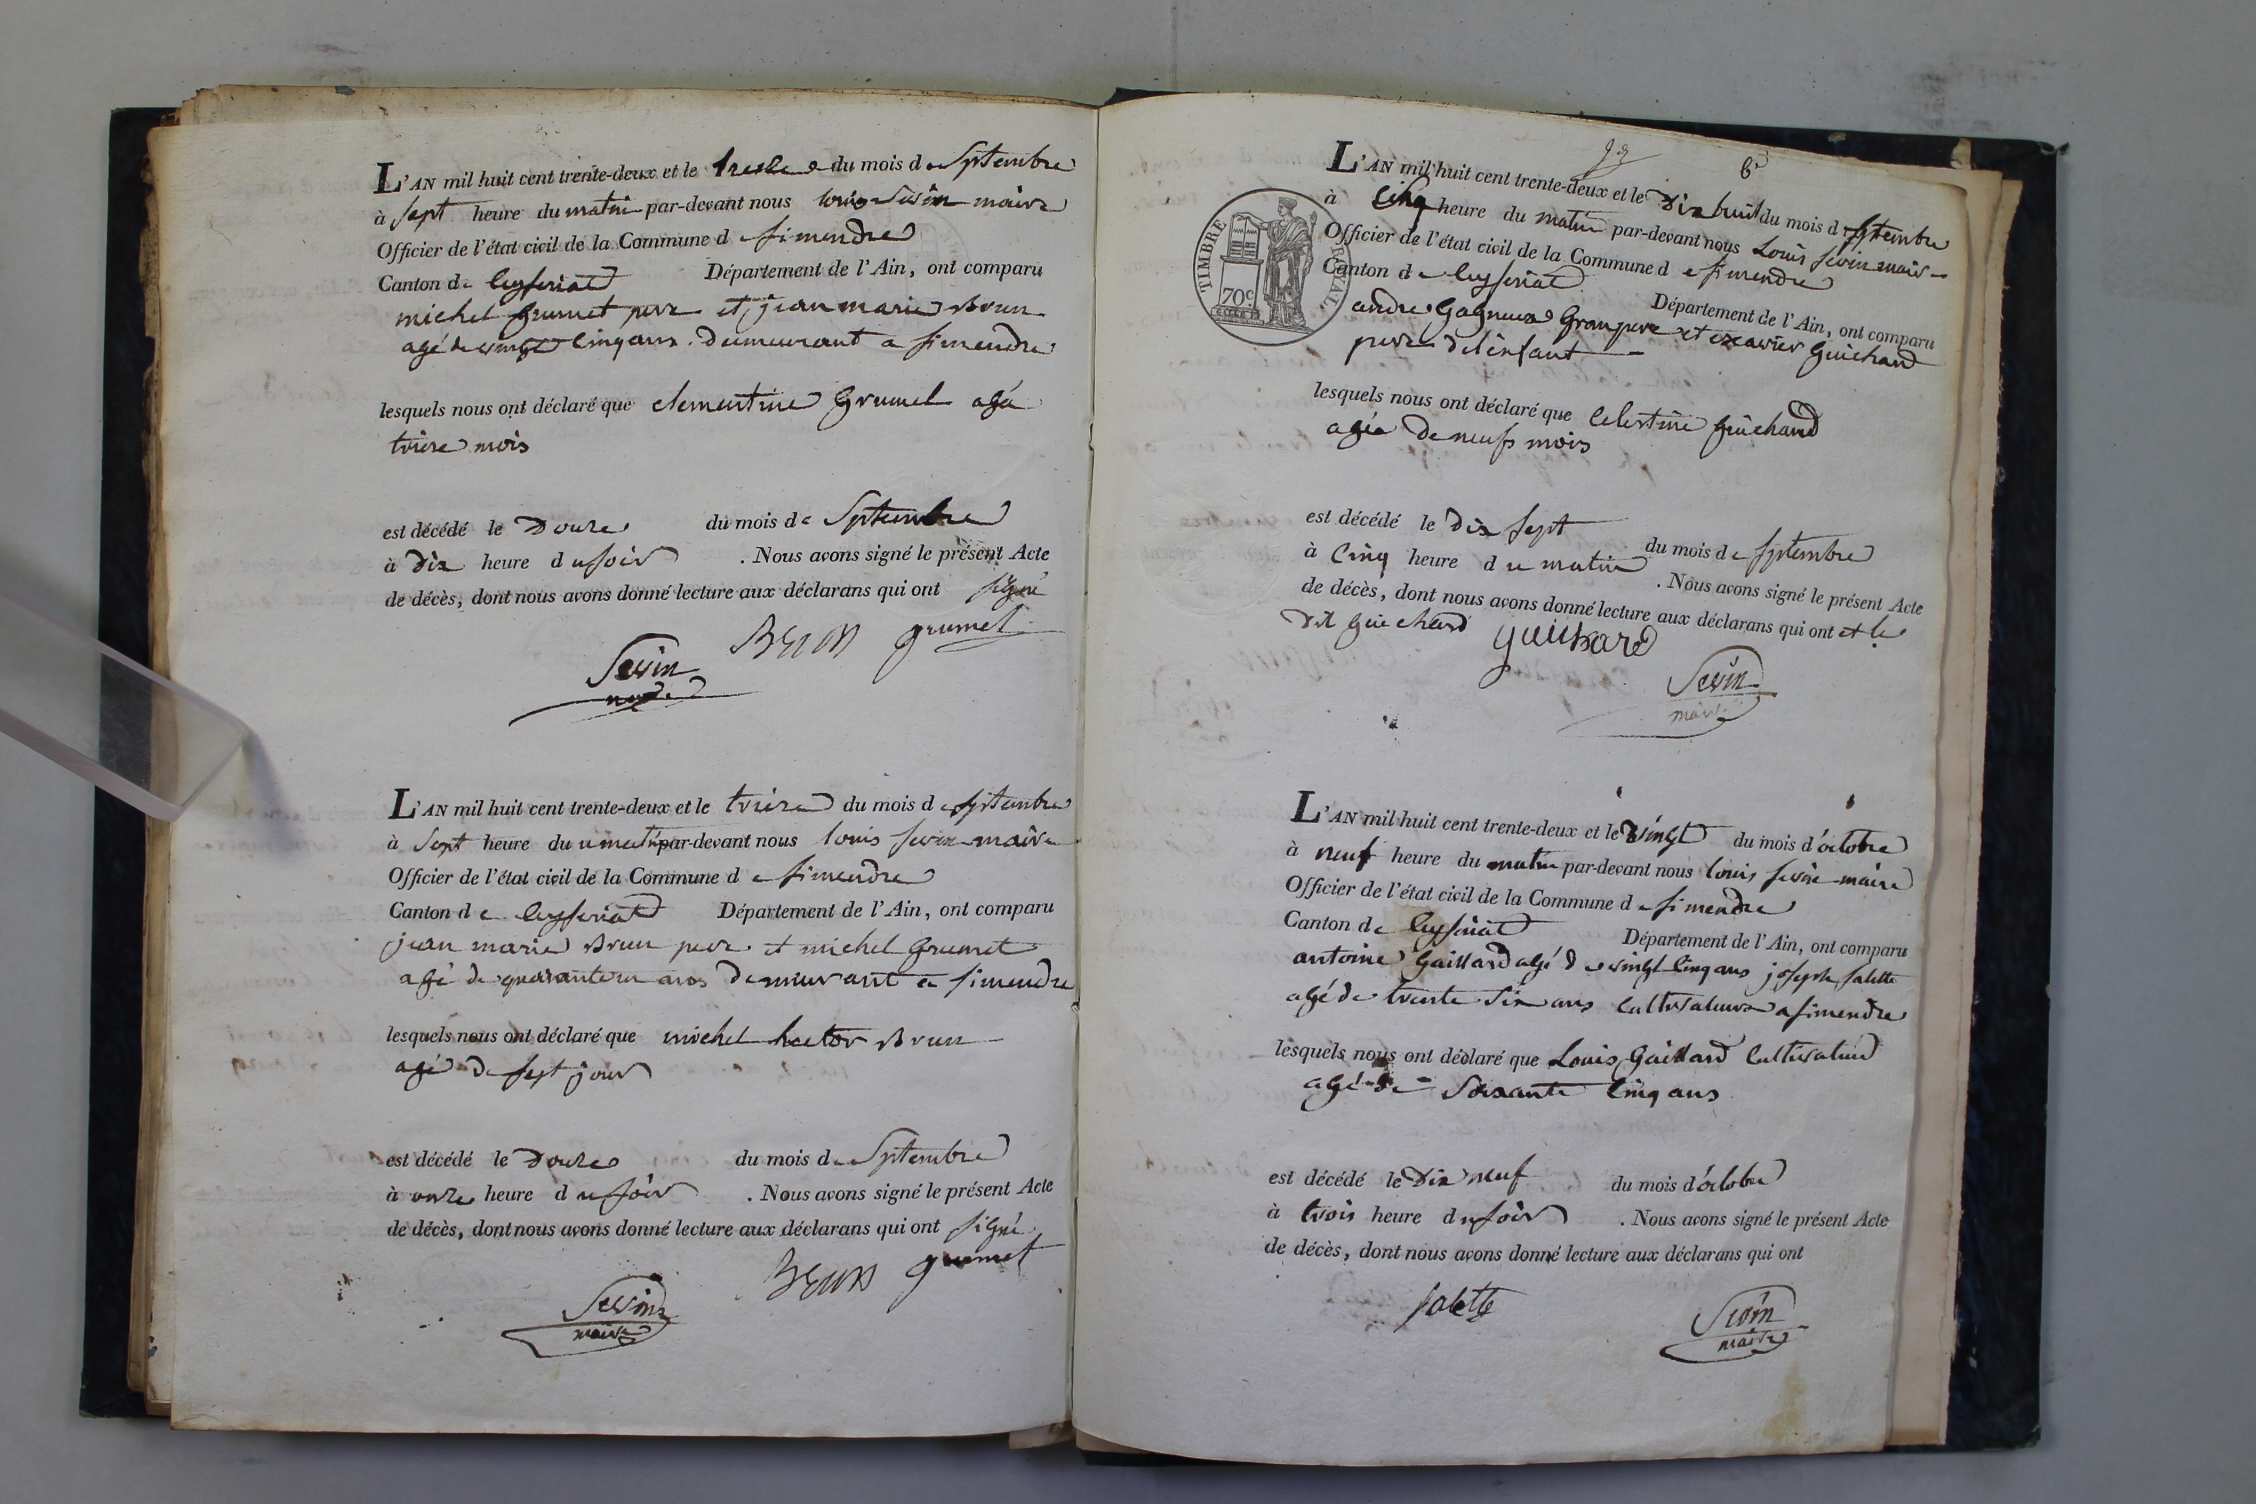 L'AN mil huit cent trente-deux et le treize du mois de Septembre
à sept heure du matin par-devant nous louis Sevin maire
Officier de l'état civil de la Commune de simendre
Canton de Ceyseriat Département de l'Ain, ont comparu
michel Grumet pere et jean marie Brun
agé de vingt cinq ans. demeurant a simendre
lesquels nous ont déclaré que clementine Grumel agé
treize mois
est décédé le Douze du mois de Septembre
à Dix heure du soir . Nous avons signé le présent Acte
de décès, dont nous avons donné lecture aux déclarans qui ont signé
BRUN grumet
Sevin
maire
L'AN mil huit cent trente-deux et le treize du mois de Septembre
à Sept heure du matin par-devant nous louis sevin maire
Officier de l'état civil de la Commune de simendre
Canton de Ceyseriat Département de l'Ain, ont comparu
jean marie Brun pere et michel Grumet
agé de quarante un ans demeurant a simendre
lesquels nous ont déclaré que michel hector Brun
agé de sept jour
est décédé le Douze du mois de Septembre
à onze heure du soir . Nous avons signé le présent Acte
de décès, dont nous avons donné lecture aux déclarans qui ont signé
BRUN grumet
Sevin
maire
TIMBRE ROYAL
70c
L'AN mil huit cent trente-deux et le Dix huit du mois de Septembre
à Cinq heure du matin par-devant nous Louis sevin maire
Officier de l'état civil de la Commune de simendre
Canton de Ceyseriat Département de l'Ain, ont comparu
andre Gagneux Granpere et exavier Guichard
pere de l'enfant
lesquels nous ont déclaré que Celestine Guichard
agée de neufs mois
est décédé le Dix sept du mois de septembre
à Cinq heure du matin . Nous avons signé le présent Acte
de décès, dont nous avons donné lecture aux déclarans qui ont et le
dit Guichard guichard
Sevin
maire
L'AN mil huit cent trente-deux et le vingt du mois d'octobre
à neuf heure du matin par-devant nous louis sevin maire
Officier de l'état civil de la Commune de simendre
Canton de Ceyseriat Département de l'Ain, ont comparu
antoine Gaillard agé de vingt Cinq ans joseph salette
agé de trente six ans Cultivateurs a simendre
lesquels nous ont déclaré que Louis Gaillard Cultivateur
agé de Soixante Cinq ans
est décédé le Dix neuf du mois d'octobre
à trois heure du soir . Nous avons signé le présent Acte
de décès, dont nous avons donné lecture aux déclarans qui ont
salette
Sevin
maire